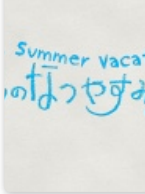 Summer Vaca
のなつやすみ